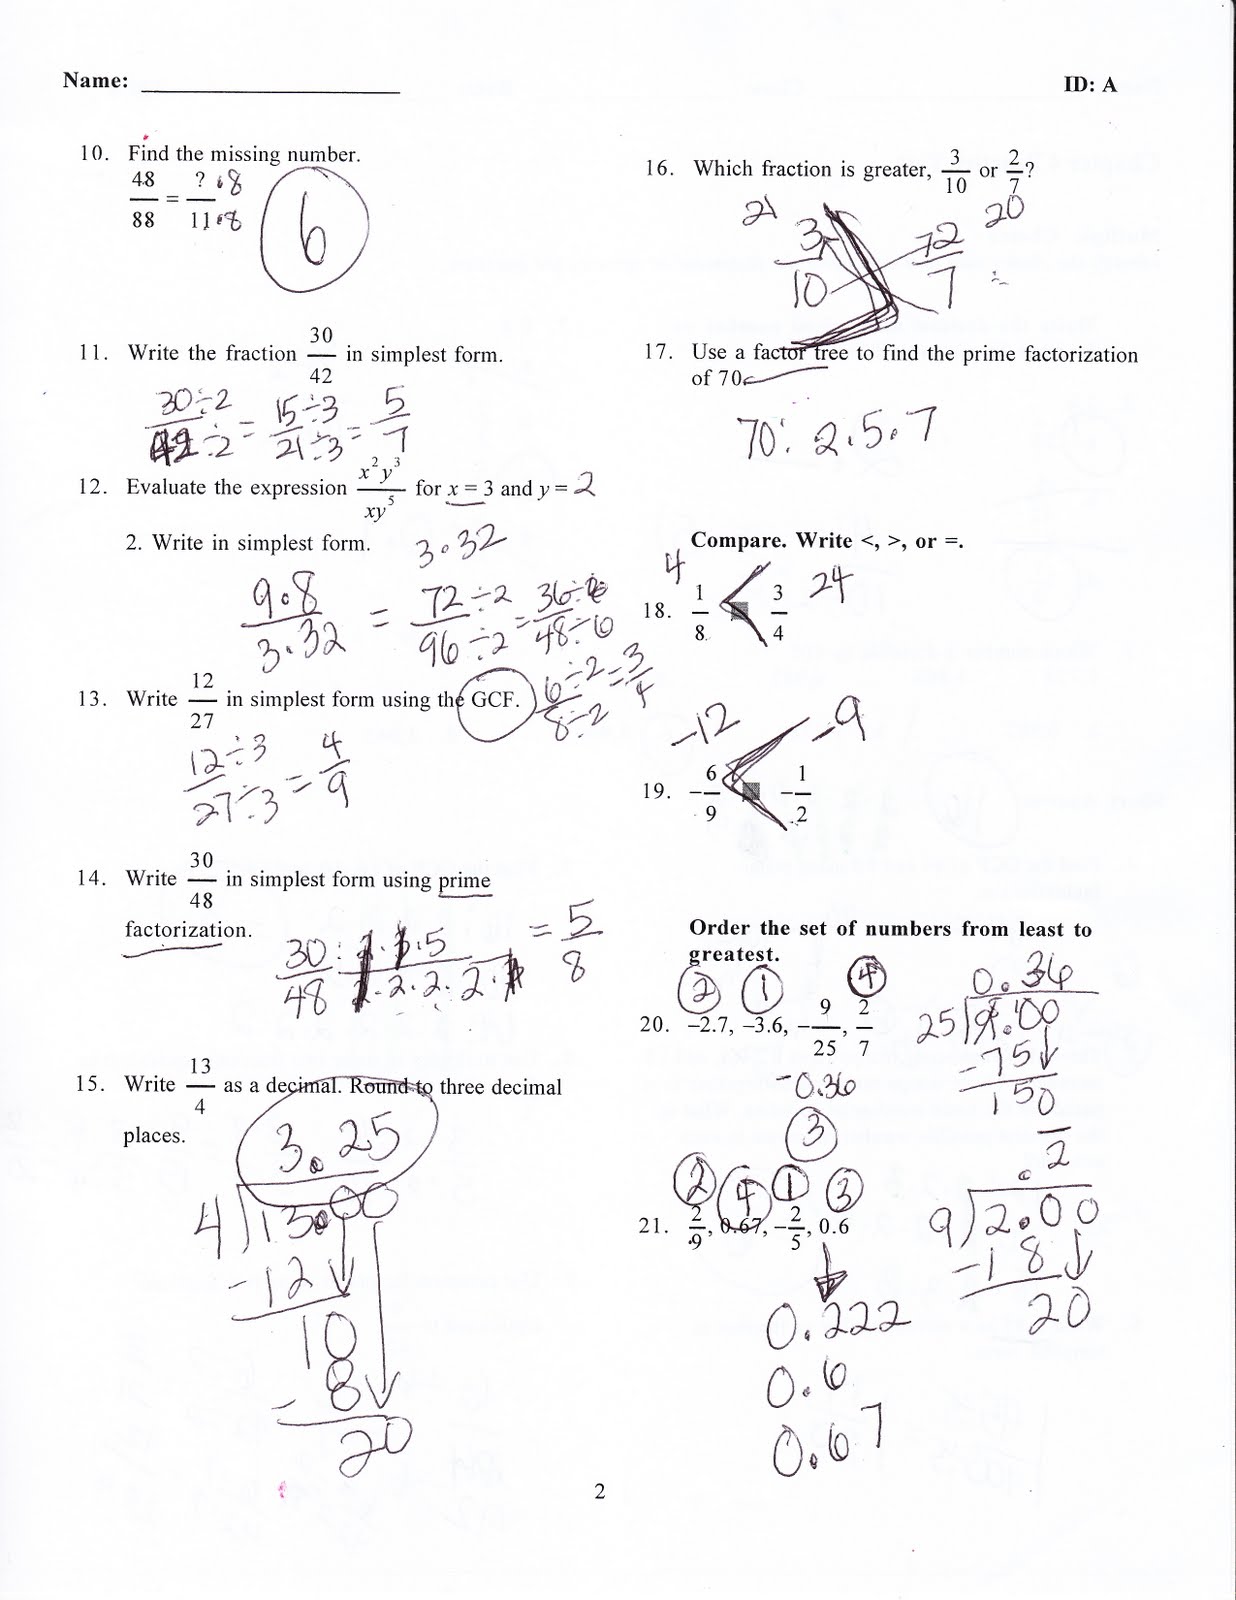 Name: ____________________
ID: A
10. Find the missing number.
48/88 = ? · 8 / 11 · 8
6
11. Write the fraction 30/42 in simplest form.
30÷2 / 42÷2 = 15÷3 / 21÷3 = 5/7
12. Evaluate the expression x²y³/xy⁵ for x = 3 and y = 2
2. Write in simplest form.
3·32
9·8 / 3·32 = 72÷2 / 96÷2 = 36÷6 / 48÷6
6÷2 / 8÷2 = 3/4
13. Write 12/27 in simplest form using the GCF.
12÷3 / 27÷3 = 4/9
14. Write 30/48 in simplest form using prime
factorization.
30/48 : 2·3·5 / 2·2·2·2·3 = 5/8
15. Write 13/4 as a decimal. Round to three decimal
places.
3.25
4 13.00
-12
10
-8
20
16. Which fraction is greater, 3/10 or 2/7?
21 20
3/10 2/7
17. Use a factor tree to find the prime factorization
of 70.
70: 2·5·7
Compare. Write <, >, or =.
4 24
18. 1/8 < 3/4
-12 -9
19. -6/9 < -1/2
Order the set of numbers from least to
greatest.
2 1 4
20. –2.7, –3.6, -9/25, 2/7
-0.36
3
0.36
25 9.00
-75
150
2 4 1 3
21. 2/9, 0.67, -2/5, 0.6
0.222
0.6
0.67
.2
9 2.00
-18
20
2